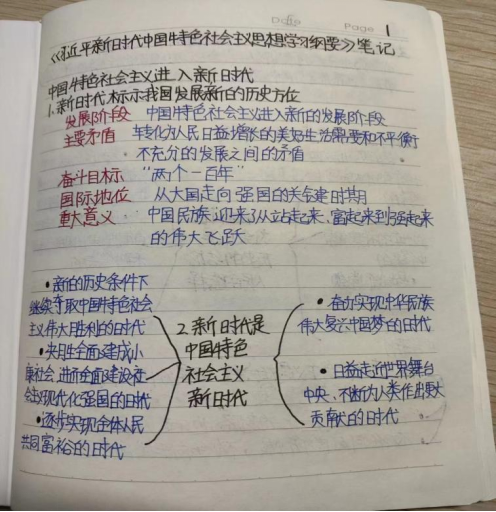 Date
Page 1
《习近平新时代中国特色社会主义思想学习纲要》笔记
中国特色社会主义进入新时代
1.新时代标示我国发展新的历史方位
发展阶段 中国特色社会主义进入新的发展阶段
主要矛盾 转化为人民日益增长的美好生活需要和不平衡
不充分的发展之间的矛盾
奋斗目标 “两个一百年”
国际地位 从大国走向强国的关键时期
重大意义 中国民族迎来了从站起来、富起来到强起来
的伟大飞跃
•新的历史条件下
继续夺取中国特色社会
主义伟大胜利的时代
•决胜全面建成小
康社会,进而全面建设社
会主义现代化强国的时代
•逐步实现全体人民
共同富裕的时代
2.新时代是
中国特色
社会主义
新时代
•奋力实现中华民族
伟大复兴中国梦的时代
•日益走近世界舞台
中央、不断为人类作出更大
贡献的时代